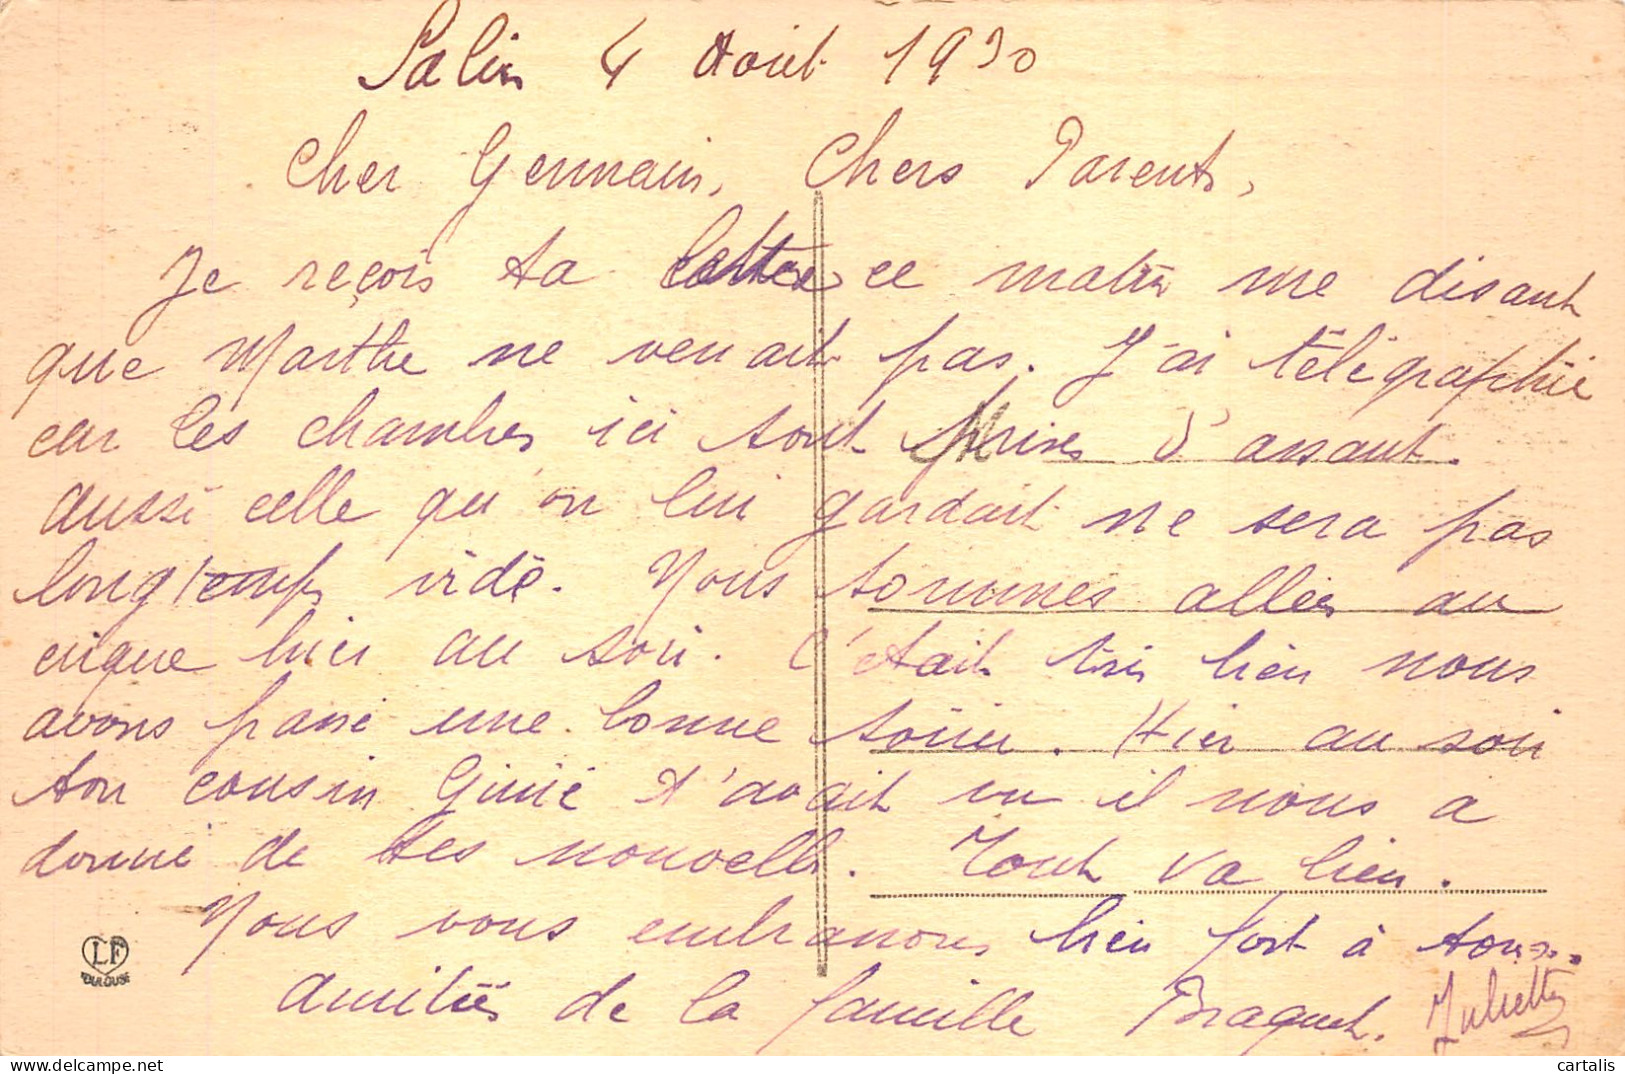 Salin 4 Août 1930
Cher Germain, Chers Parents,
Je reçois ta lettre ce matin me disant
que Marthe ne venait pas. J'ai télégraphié
car les chambres ici sont prises d'assaut.
aussi celle qu'on lui gardait ne sera pas
longtemps vide. Nous sommes allées au
cirque hier au soir. C'était très bien nous
avons passé une bonne soirée. Hier au soir
ton cousin t'avait vu il nous a
donné de tes nouvelles. Tout va bien.
Nous vous embrassons bien fort à tous.
Amitiés de la famille Braquet. Juliette
LF
TOULOUSE
cartalis